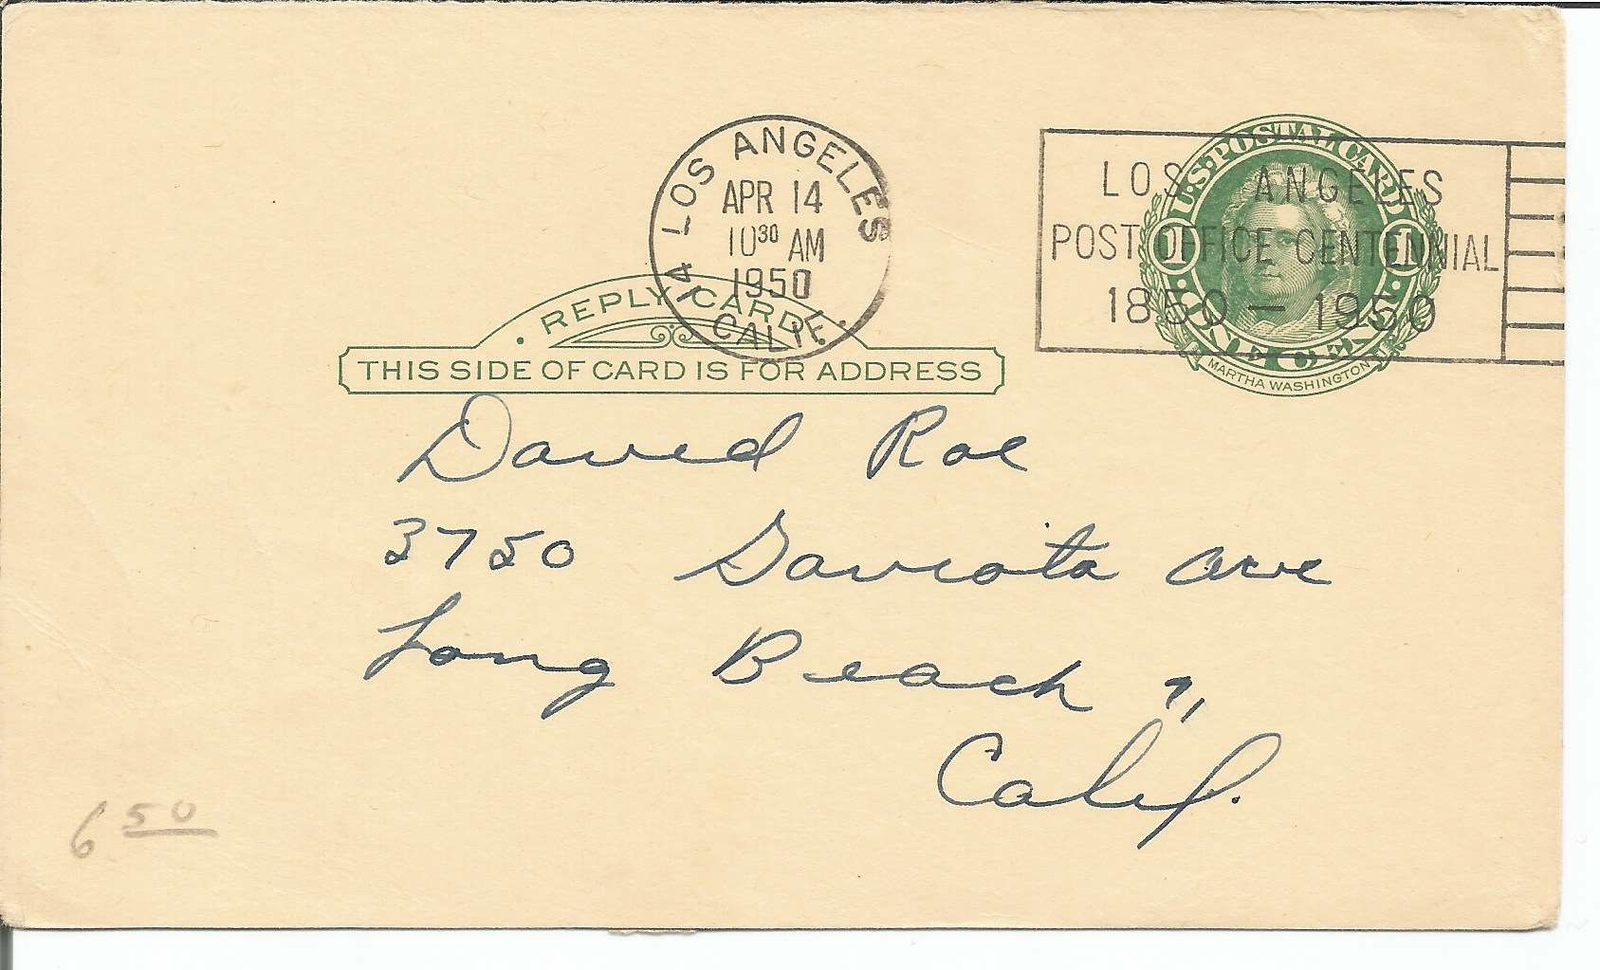 LOS ANGELES
14
APR 14
10³⁰ AM
1950
CALIF.
LOS ANGELES
POST OFFICE CENTENNIAL
1850 — 1950
U.S. POSTAL CARD
1 1
ONE CENT
MARTHA WASHINGTON
REPLY CARD
THIS SIDE OF CARD IS FOR ADDRESS
David Roe
3750 Gaviota Ave
Long Beach 7,
Calif.
6 50